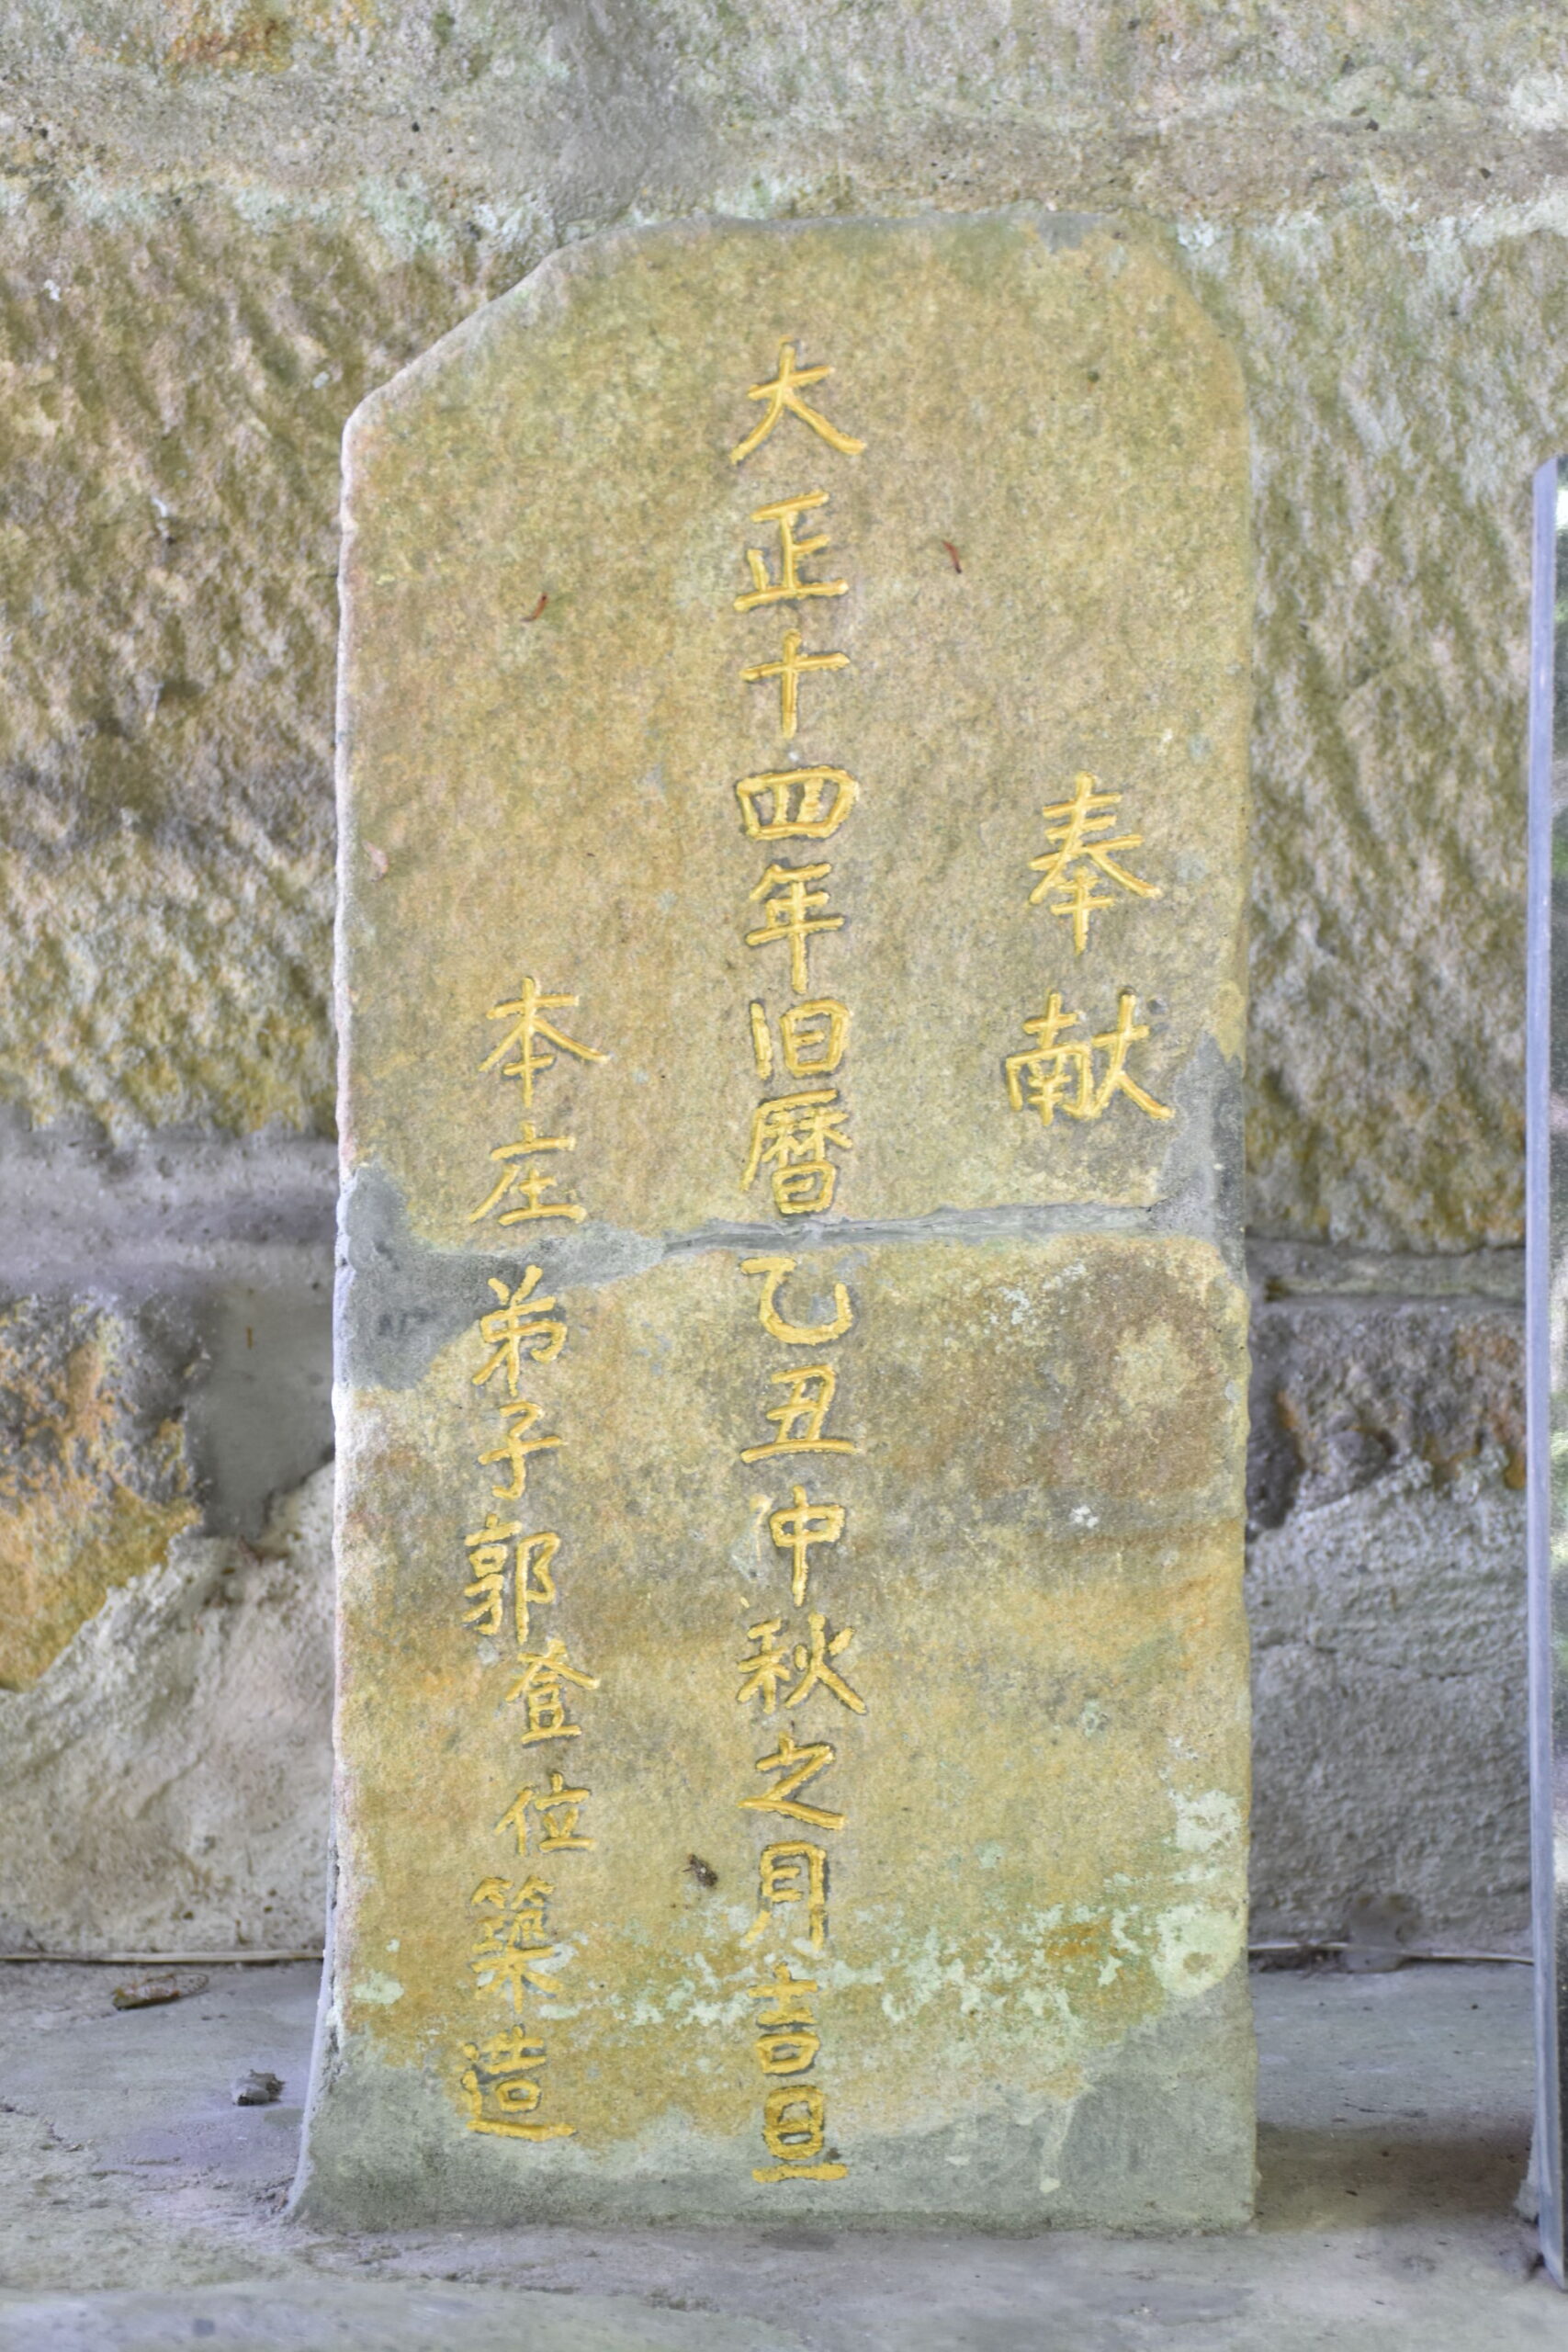 奉献
大正十四年旧暦乙丑仲秋之月吉旦
本庄弟子郭登位築造